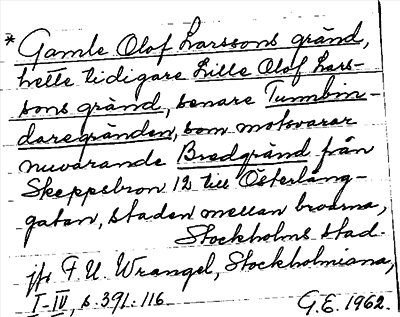 * Gamle Olof Larssons gränd,
hette tidigare Lille Olof Lars-
sons gränd, senare Tunnbin-
daregränden, som motsvarar
nuvarande Bredgränd från
Skeppsbron 12 till Österlång-
gatan, staden mellan broarna,
Stockholms stad.
jfr F. U. Wrangel, Stockholmiana,
I-IV, s. 391. 116.
G.E. 1962.